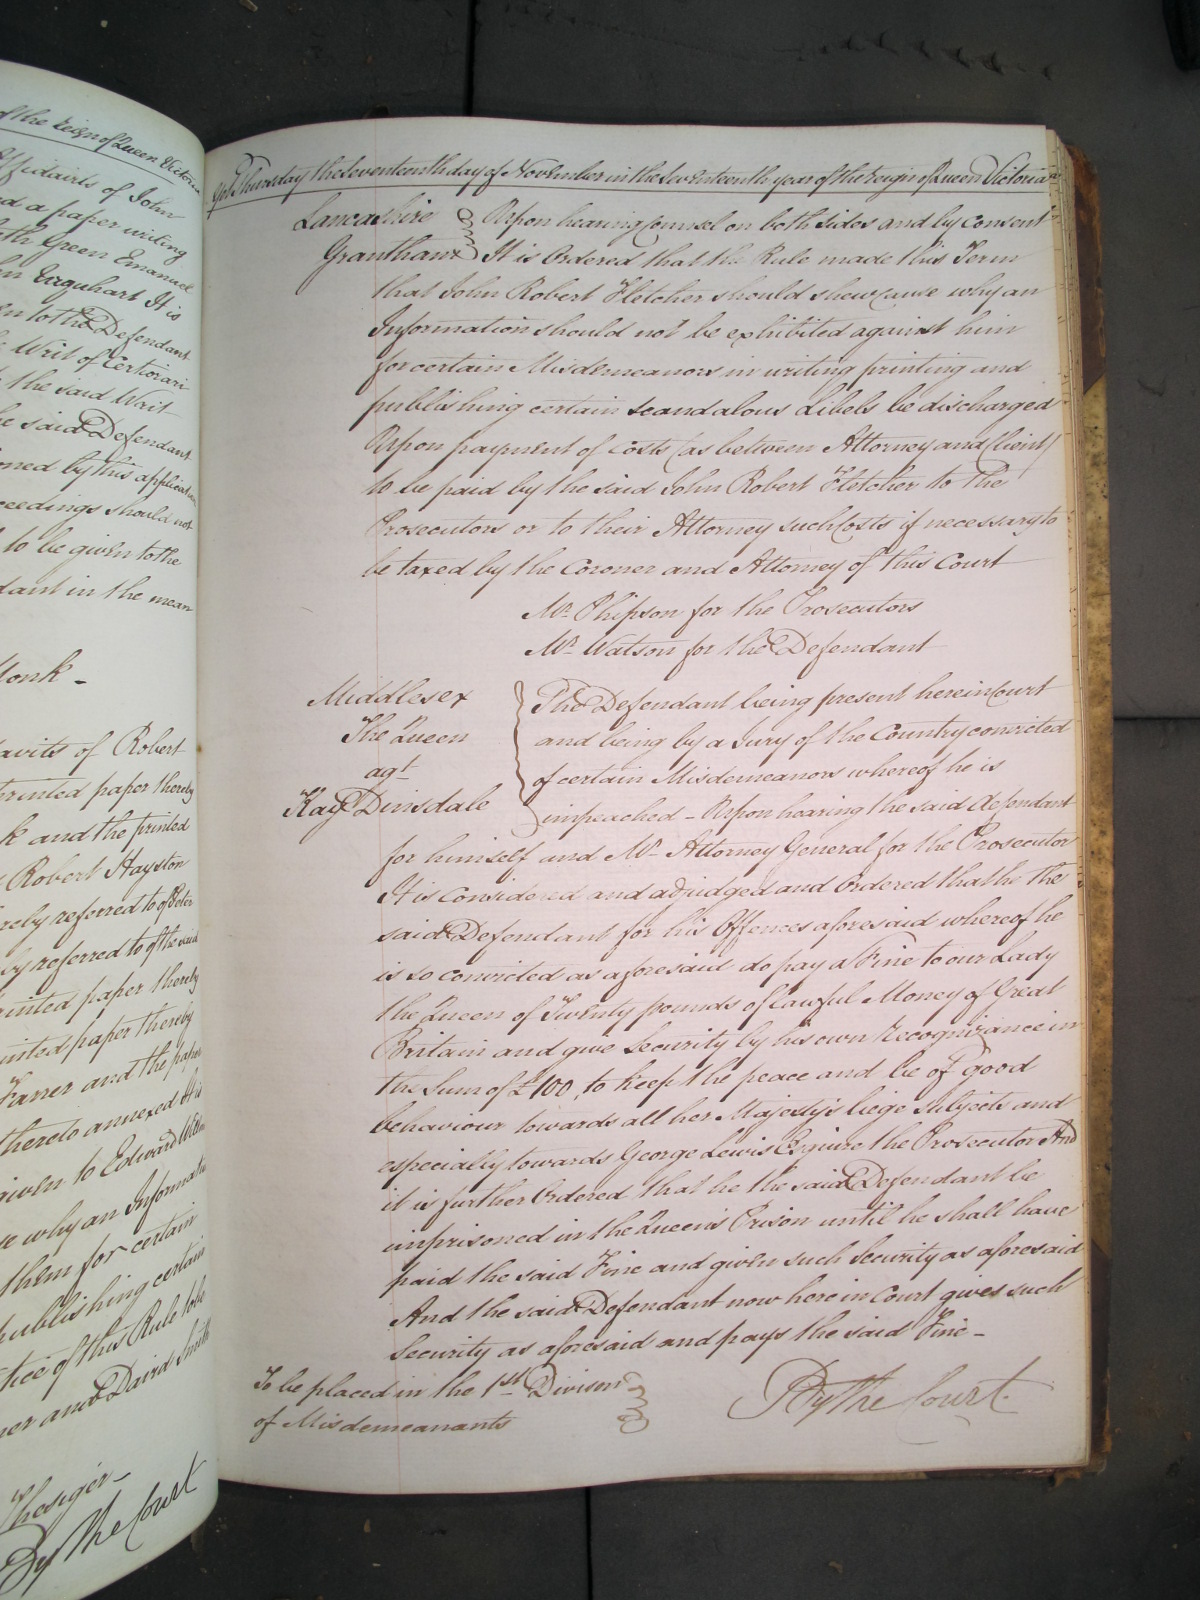 of the Reign of Queen Victoria
Affidavits of John
and a paper writing
Green Emanuel
Urquhart It is
to the Defendant
Writ of Certiorari
the said Writ
said Defendant
by this application
proceedings should not
to be given to the
in the mean
Monk -
Affidavits of Robert
printed paper thereby
and the printed
Robert Hayston
referred to of Peter
referred to of the said
printed paper thereby
printed paper thereby
Farrer and the paper
thereto annexed It is
given to Edward
why an Information
them for certain
publishing certain
of this Rule to be
and David Smith
Thesiger -
By the Court
Upon Thursday the Seventeenth day of November in the Seventeenth year of the Reign of Queen Victoria
Lancashire Upon hearing Counsel on both sides and by Consent
Grantham It is Ordered that the Rule made this Term
that John Robert Fletcher should shew cause why an
Information should not be exhibited against him
for certain Misdemeanors in writing printing and
publishing certain scandalous Libels be discharged
Upon payment of Costs (as between Attorney and Client)
to be paid by the said John Robert Fletcher to the
Prosecutors or to their Attorney such Costs if necessary to
be taxed by the Coroner and Attorney of this Court
Mr. Phipson for the Prosecutors
Mr. Watson for the Defendant
Middlesex The Defendant being present here in Court
The Queen and being by a Jury of the Country convicted
agt of certain Misdemeanors whereof he is
Kay Dinsdale impeached - Upon hearing the said defendant
for himself and Mr. Attorney General for the Prosecutor
It is considered and adjudged and Ordered that he the
said Defendant for his Offences aforesaid whereof he
is so convicted as aforesaid do pay a Fine to our Lady
the Queen of Twenty pounds of lawful Money of Great
Britain and give Security by his own Recognizance in
the Sum of £100, to keep the peace and be of good
behaviour towards all her Majesty's liege subjects and
especially towards George Lewis Esquire the Prosecutor And
it is further Ordered that he the said Defendant be
imprisoned in the Queen's Prison until he shall have
paid the said Fine and given such Security as aforesaid
And the said Defendant now here in Court gives such
Security as aforesaid and pays the said Fine -
To be placed in the 1st Divison
of Misdemeanants
By the Court.